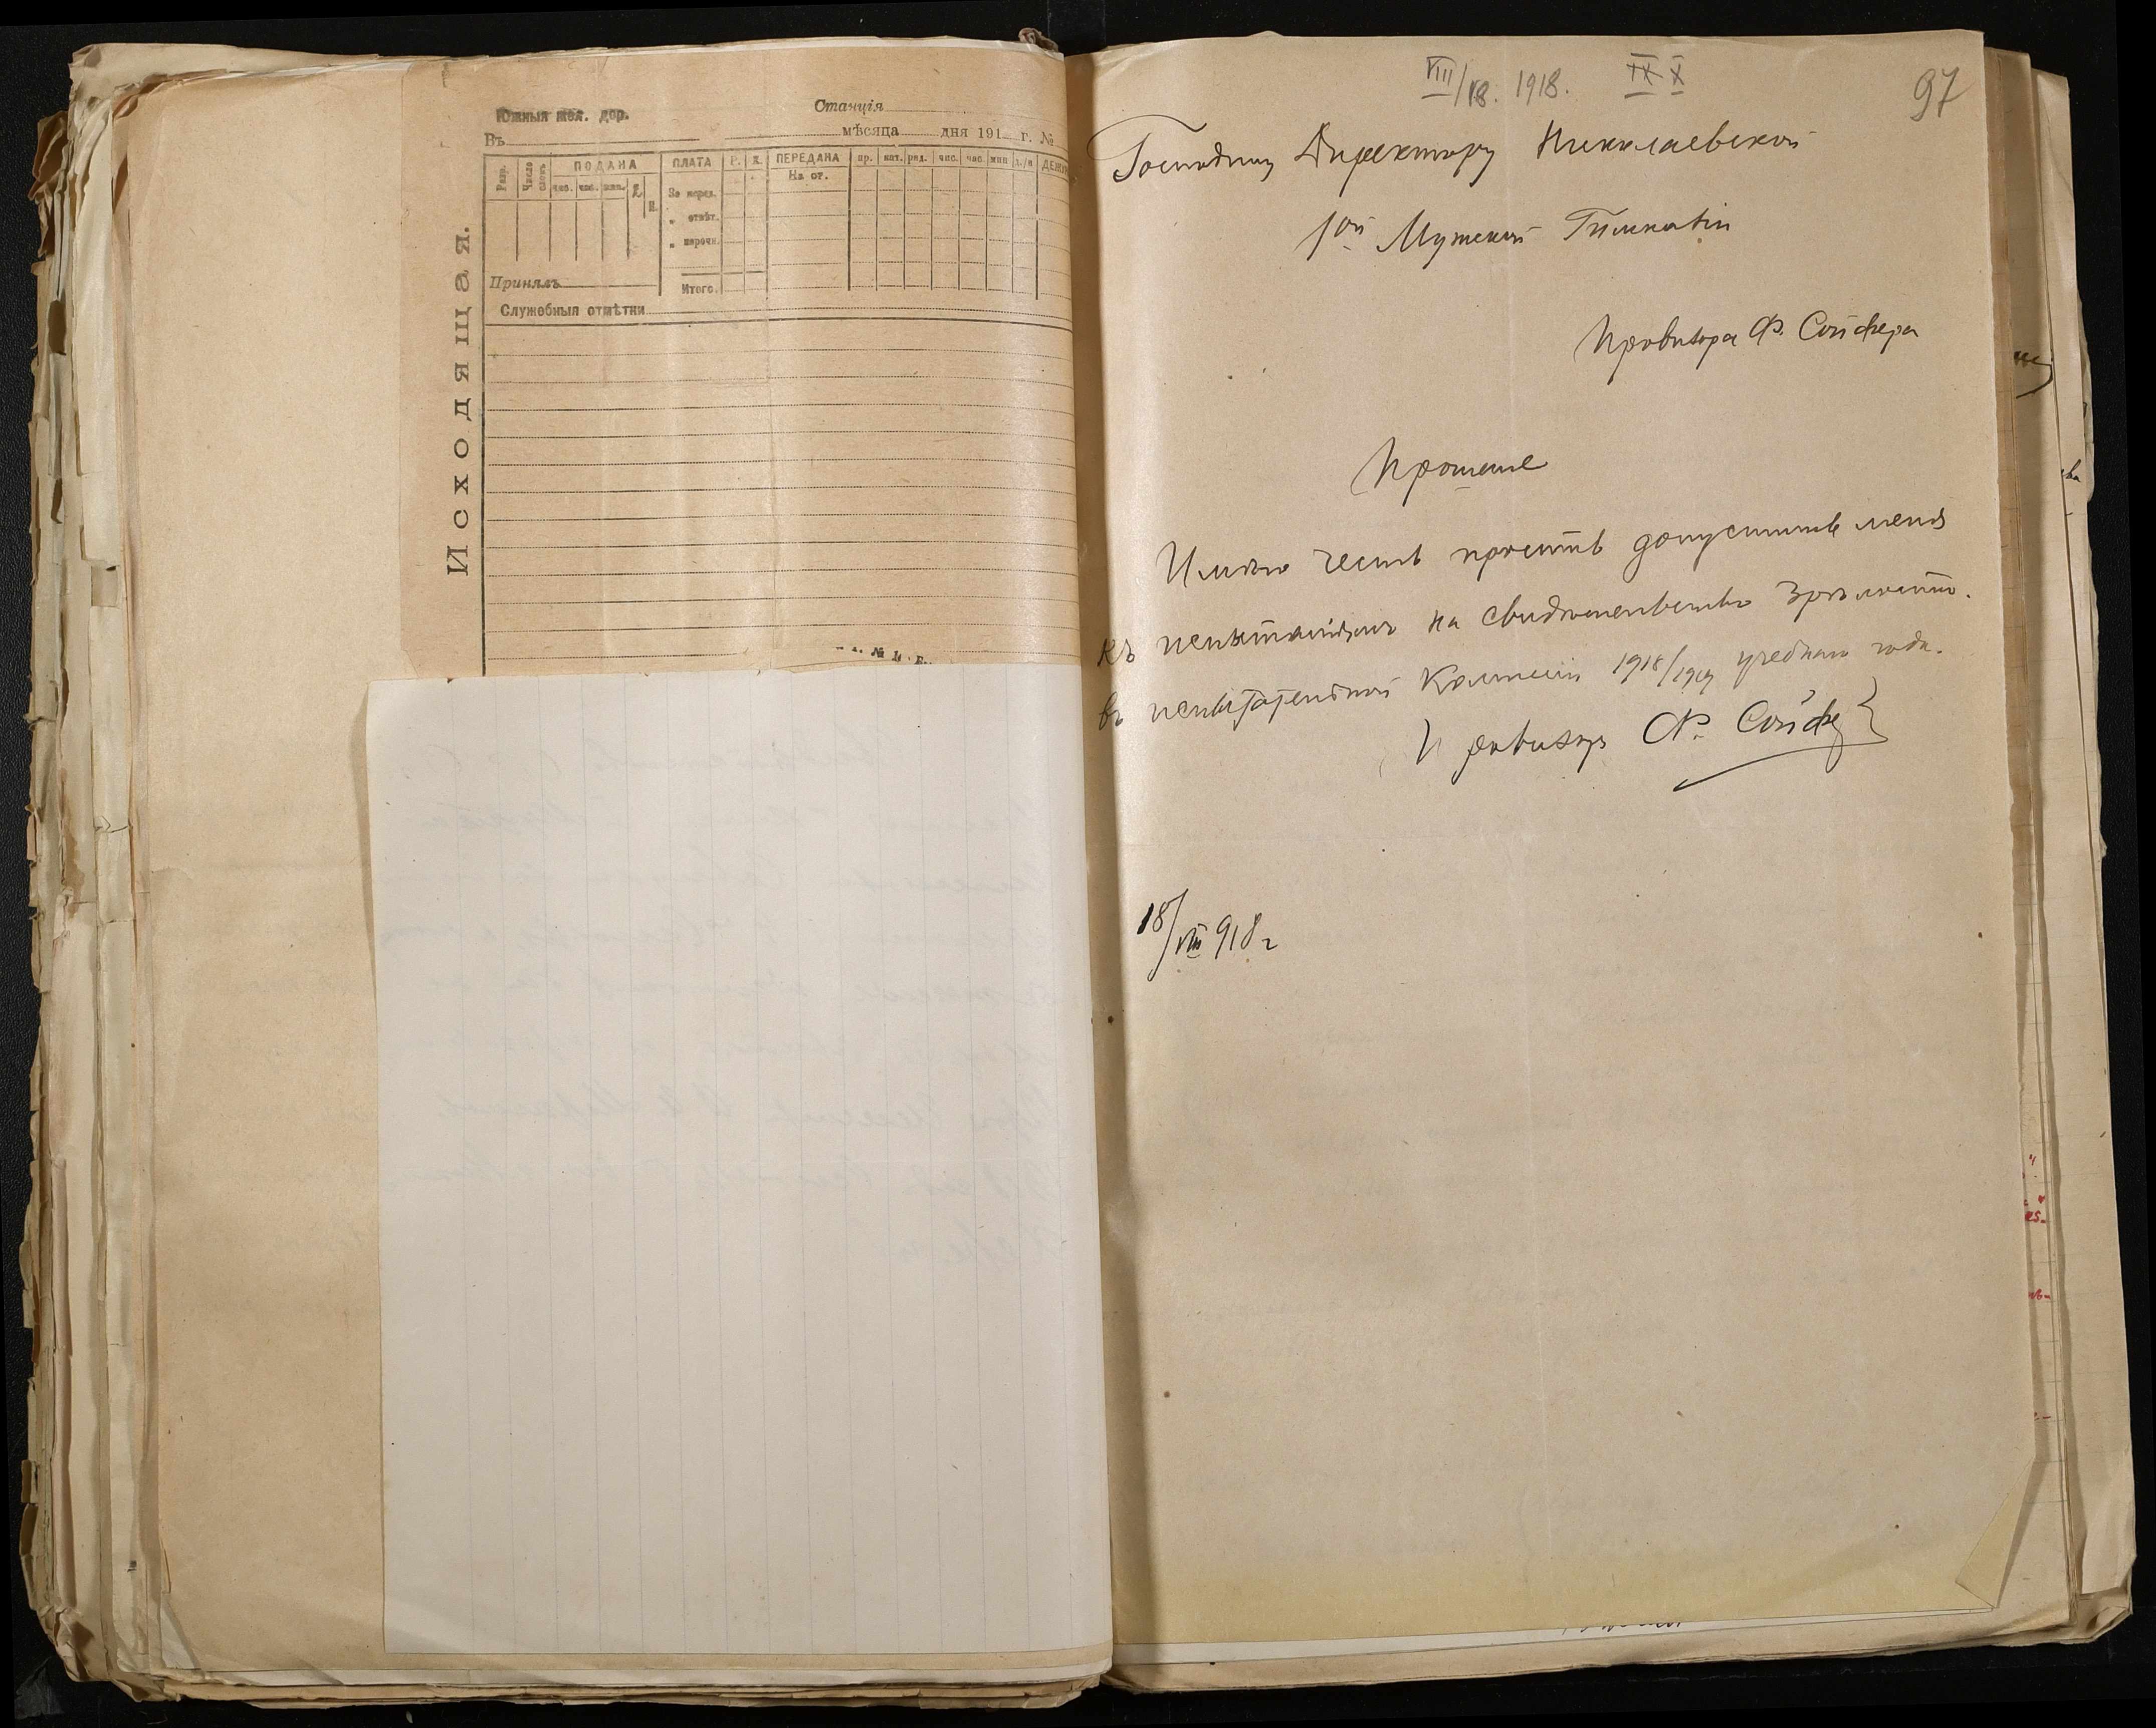 Южныя жел. дор.
Станція
Въ мѣсяца дня 191 г. №
Разр. Число словъ ПОДАНА ПЛАТА Р. К. ПЕРЕДАНА пр. кат. ряд. чис. час. мин. д./н
чис. час. мин.
На от.
За перед.
„ отвѣт.
„ нарочн.
Итого.
Принялъ
Служебныя отмѣтки
Исходящая.
VIII/18. 1918. IX X
97
Господину Директору Николаевской
1ой Мужской Гимназіи
Провизора Ф. Сойфера
Прошеніе
Имѣю честь просить допустить меня
къ испытаніямъ на свидѣтельство зрѣлости.
въ испытательной Комиссіи 1918/1919 учебнаго года.
Провизоръ Ф. Сойфер
18/VIII 918 г